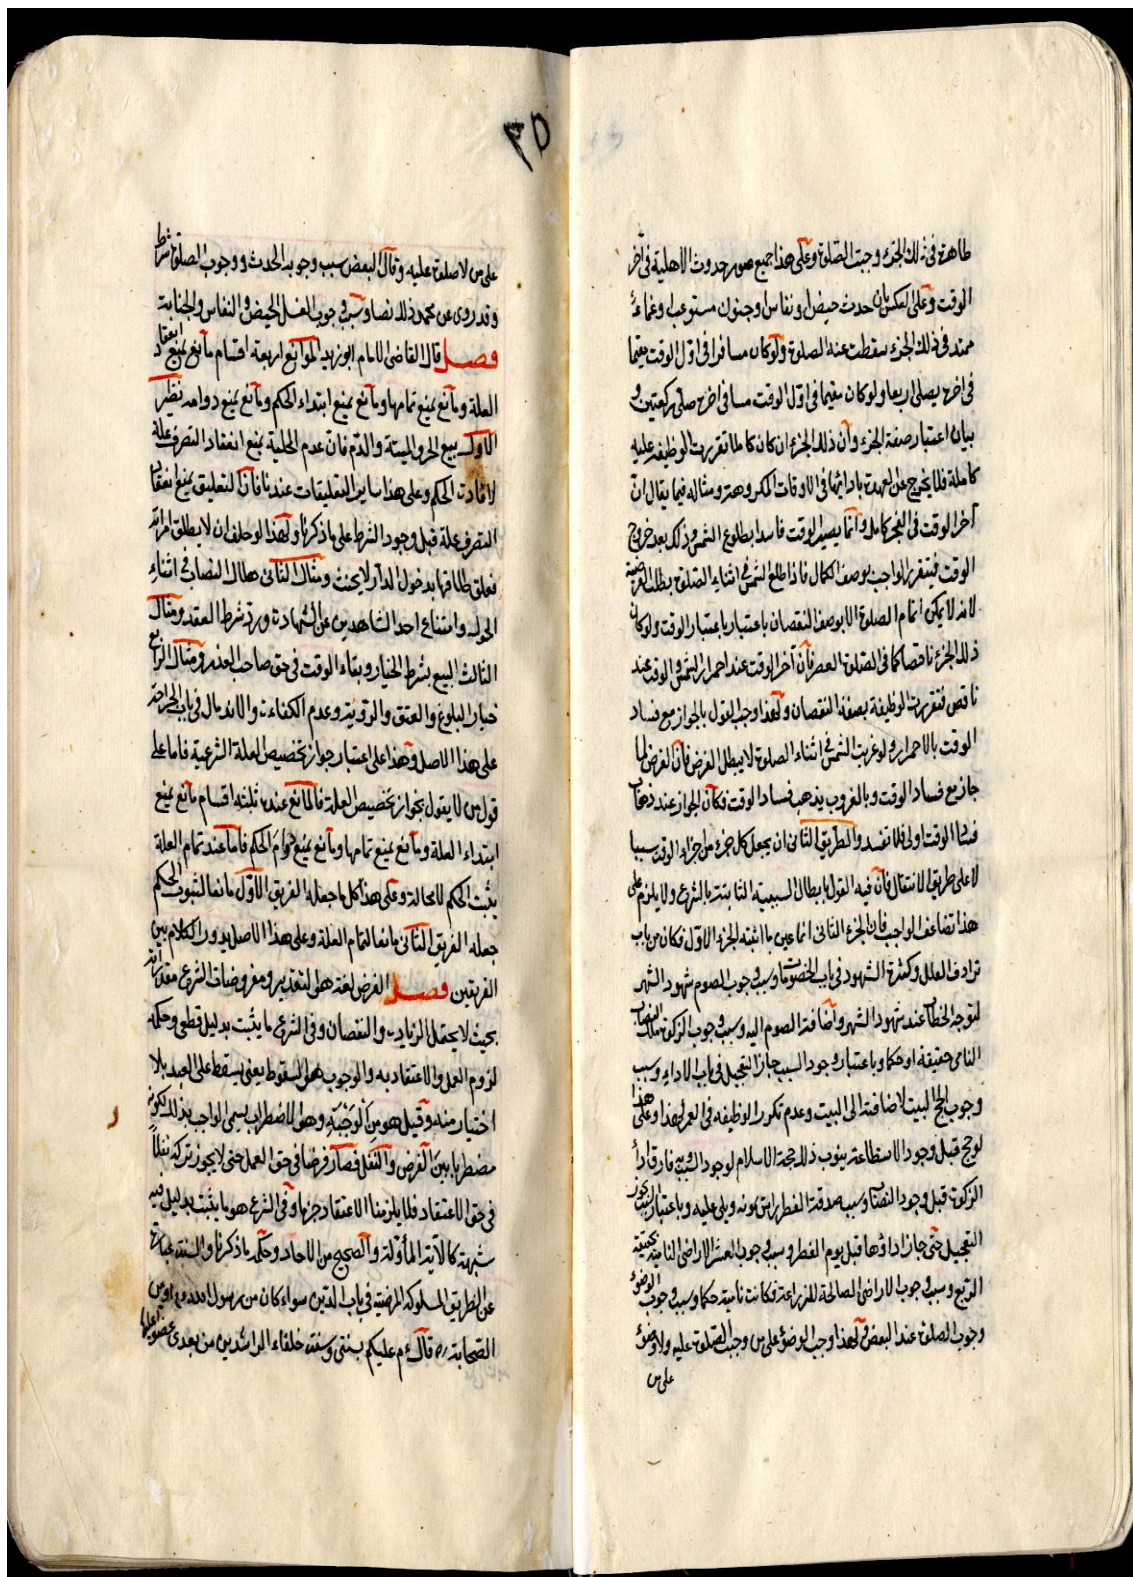 طاهرة فى ذلك الجزء وجبت الصلوة وعلى هذا جميع صور حدوث الاهلية فى آخر
الوقت وعلى العكس بان حدث حيض او نفاس او جنون مستوعب او غماء
ممتد فى ذلك الجزء سقطت عنه الصلوة ولو كان مسافرا فى اول الوقت مقيما
فى اخره يصلى اربعا ولو كان مقيما فى اول الوقت مسافرا فى اخره صلى ركعتين و
بيان اعتبار صفة الجزء وان ذلك الجزء ان كان كاملا تقررت الوظيفة عليه
كاملة فلا يخرج عن العهدة بادائها فى الاوقات المكروهة ومثاله فيما يقال ان
آخر الوقت فى الفجر كامل وانما يصير الوقت فاسدا بطلوع الشمس وذلك بعد خروج
الوقت فيتقرر الواجب بوصف الكمال فاذا طلع الشمس فى اثناء الصلوة بطلت الفرضية
لانه لا يمكن اتمام الصلوة الا بوصف النقصان باعتبار الوقت ولو كان
ذلك الجزء ناقصا كما فى الصلوة العصر فان آخر الوقت عند احمرار الشمس والوقت عنده
ناقص فتقررت الوظيفة بصفة النقصان ولهذا وجب القول بالجواز مع فساد
الوقت بالاحمرار ولو غربت الشمس فى اثناء الصلوة لا يبطل الفرض فان الفرض لما
جاز مع فساد الوقت وبالغروب يذهب فساد الوقت فكان الجواز عند ذهاب
فساد الوقت اولى فلا تفسد والطريق الثانى ان يجعل كل جزء من اجزاء الوقت سببا
لا على طريق الانتقال فان فيه القول بابطال السببية الثابتة بالشرع ولا يلزم على
هذا تضاعف الواجب فان الجزء الثانى انما عين ما اثبته الجزء الاول فكان من باب
ترادف العلل وكثرة الشهود فى باب الخصومات وسبب وجوب الصوم شهود الشهر
لتوجه الخطاب عند شهود الشهر واضافة الصوم اليه وسبب وجوب الزكوة ملك النصاب
النامى حقيقة او حكما وباعتبار وجود السبب جاز التعجيل فى باب الاداء وسبب
وجوب الحج البيت لاضافته الى البيت وعدم تكرر الوظيفة فى العمر لهذا وعلى هذا
لو حج قبل وجود الاستطاعة ينوب ذلك حجة الاسلام لوجود السبب وبه فارق اداء
الزكوة قبل وجود النصاب وسبب صدقة الفطر راس يمونه ويلى عليه وباعتبار السبب يجوز
التعجيل حتى جاز اداؤها قبل يوم الفطر وسبب وجوب العشر الاراضى النامية بحقيقة
الريع وسبب وجوب الاراضى الصالحة للزراعة فكانت نامية حكما وسبب وجوب الوضوء
وجوب الصلوة عند البعض ولهذا وجب الوضوء على من وجبت الصلوة عليه ولا وضوء
على من
٣٥
على من لا صلوة عليه وقال البعض سبب وجوبه الحدث ووجوب الصلوة شرط
وقد روى عن محمد ذلك نصا وسبب وجوب الغسل الحيض والنفاس والجنابة
فصل قال القاضى الامام ابو زيد الموانع اربعة اقسام مانع يمنع انعقاد
العلة ومانع يمنع تمامها ومانع يمنع ابتداء الحكم ومانع يمنع دوامه نظير
الاول بيع الحر والميتة والدم فان عدم المحلية يمنع انعقاد التصرف علة
لافادة الحكم وعلى هذا ساير التعليقات عندنا فان التعليق يمنع انعقاد
التصرف علة قبل وجود الشرط على ما ذكرنا ولهذا لو حلف ان لا يطلق امراته
فعلق طلاقها بدخول الدار لا يحنث ومثال الثانى هلاك النصاب فى اثناء
الحول وامتناع احد الشاهدين عن الشهادة ورد شرط العقد ومثال
الثالث البيع بشرط الخيار وبقاء الوقت فى حق صاحب العذر ومثال الرابع
خيار البلوغ والعتق والروية وعدم الكفاءة والاندمال فى باب الجراحة
على هذا الاصل وهذا على اعتبار جواز تخصيص العلة الشرعية فاما على
قول من لا يقول بجواز تخصيص العلة فالمانع عنده ثلثة اقسام مانع يمنع
ابتداء العلة ومانع يمنع تمامها ومانع يمنع دوام الحكم فاما عند تمام العلة
يثبت الحكم لا محالة وعلى هذا كل ما جعله الفريق الاول مانعا لثبوت الحكم
جعله الفريق الثانى مانعا لتمام العلة وعلى هذا الاصل يدور الكلام بين
الفريقين فصل الفرض لغة هو التقدير ومفروضات الشرع مقدراته
بحيث لا يحتمل الزيادة والنقصان وفى الشرع ما يثبت بدليل قطعى وحكمه
لزوم العمل والاعتقاد به والوجوب هو السقوط يعنى يسقط على العبد بلا
اختيار منه وقيل هو من الوجبة وهو الاضطراب يسمى الواجب بذلك لكونه
مضطربا بين الفرض والنفل فصار فرضا فى حق العمل حتى لا يجوز تركه نفلاً
فى حق الاعتقاد فلا يلزمنا الاعتقاد جزما وفى الشرع هو ما يثبت بدليل فيه
شبهة كالآية المأولة والصحيح من الاحاد وحكمه ما ذكرنا والسنة عبارة
عن الطريق المسلوكة المرضية فى باب الدين سواء كان من رسول الله م او من
الصحابة رض قال ع م عليكم بسنتى وسنة خلفاء الراشدين من بعدى عضوا عليها